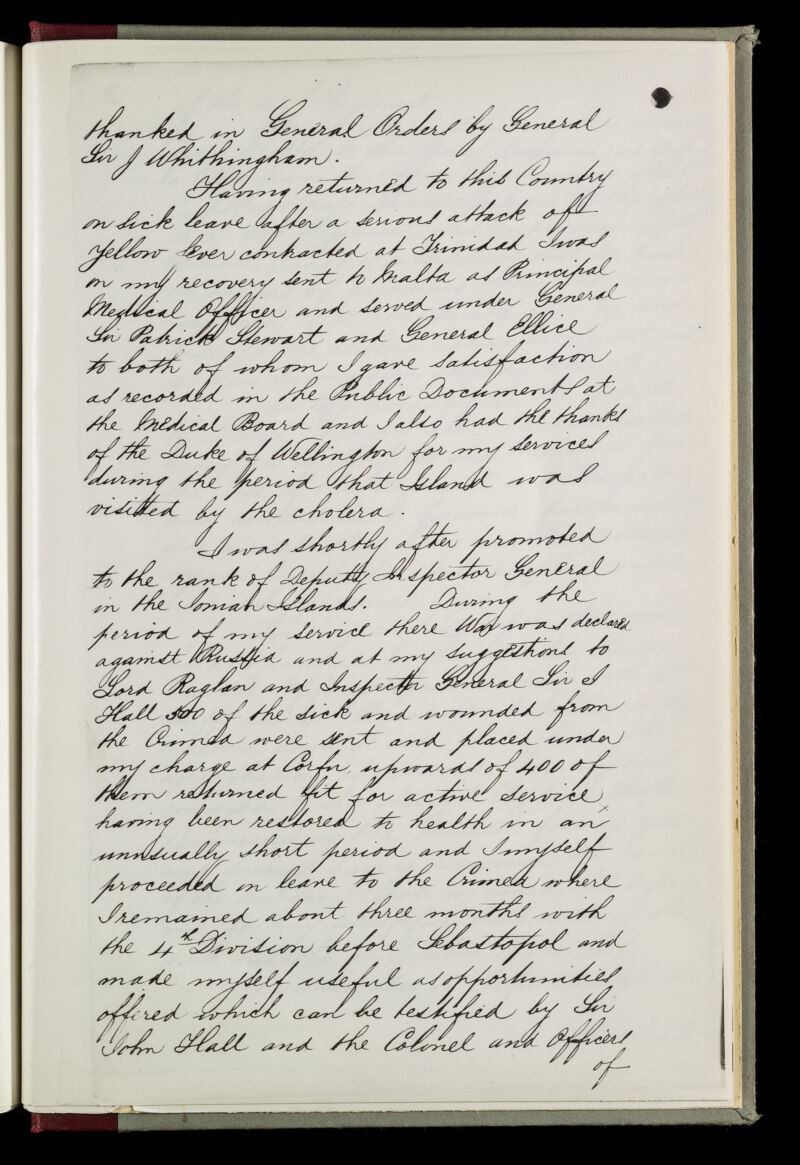 thanked in General Orders by General
Sir J Whithingham.
Having returned to this Country
on sick leave after a serious attack of
Yellow Fever contracted at Trinidad I was
on my recovery sent to Malta as Principal
Medical Officer and served under General
Sir Patrick Stewart and General Ellice
to both of whom I gave satisfaction
as recorded in the Public Documents at
the Medical Board and I also had the thanks
of the Duke of Wellington for my services
during the period that Island was
visited by the cholera.
I was shortly after promoted
to the rank of Deputy Inspector General
in the Ionian Islands. During the
period of my service there War was declared
against Russia and at my suggestions to
Lord Raglan and Inspector General Sir J
Hall 500 of the sick and wounded from
the Crimea were sent and placed under
my charge at Corfu, upwards of 400 of
them returned fit for active service,
having been restored to health in an
unusually short period and I myself
proceeded on leave to the Crimea where
I remained about three months with
the 4th Division before Sebastopol and
made myself useful as opportunities
offered which can be testified by Sir
John Hall and the Colonel and Officers
of